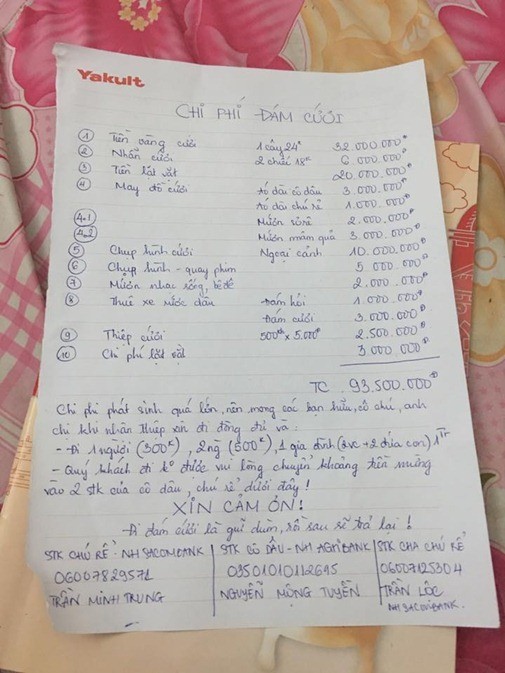 Yakult
CHI PHÍ ĐÁM CƯỚI
① Tiền vàng cưới 1 cây 24K 32.000.000đ
② Nhẫn cưới 2 chiếc 18K 6.000.000đ
③ Tiền lặt vặt 20.000.000đ
④ May đồ cưới Áo dài cô dâu 3.000.000đ
Áo dài chú rể 1.000.000đ
4.1 Mướn sơrê 2.000.000đ
4.2 Mướn mâm quả 3.000.000đ
⑤ Chụp hình cưới Ngoại cảnh 10.000.000đ
⑥ Chụp hình - quay phim 5.000.000đ
⑦ Mướn nhạc sống, bê đê 2.000.000đ
⑧ Thuê xe rước dâu Đám hỏi 1.000.000đ
Đám cưới 3.000.000đ
⑨ Thiệp cưới 500th x 5.000đ 2.500.000đ
⑩ Chi phí lặt vặt 3.000.000đ
TC 93.500.000đ
Chi phí phát sinh quá lớn, nên mong các bạn hữu, cô chú, anh
chị khi nhận thiệp xin đi đông đủ và:
- Đi 1 người (300K), 2ng (500K), 1 gia đình (2vc + 2 đứa con) 1Tr
- Quý khách đi ko được vui lòng chuyển khoảng tiền mừng
vào 2 stk của cô dâu, chú rể dưới đây!
XIN CẢM ƠN!
Đi đám cưới là gửi dùm, rồi sau sẽ trả lại!
STK CHÚ RỂ - NH SACOMBANK | STK CÔ DÂU - NH AGRIBANK | STK CHA CHÚ RỂ
06007829571 | 03501010112695 | 06007125304
TRẦN MINH TRUNG | NGUYỄN MỘNG TUYỀN | TRẦN LỘC
NH SACOMBANK.